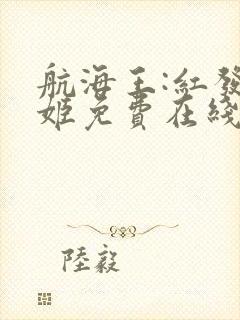 航海王:紅發
姬免費在綫
陸毅